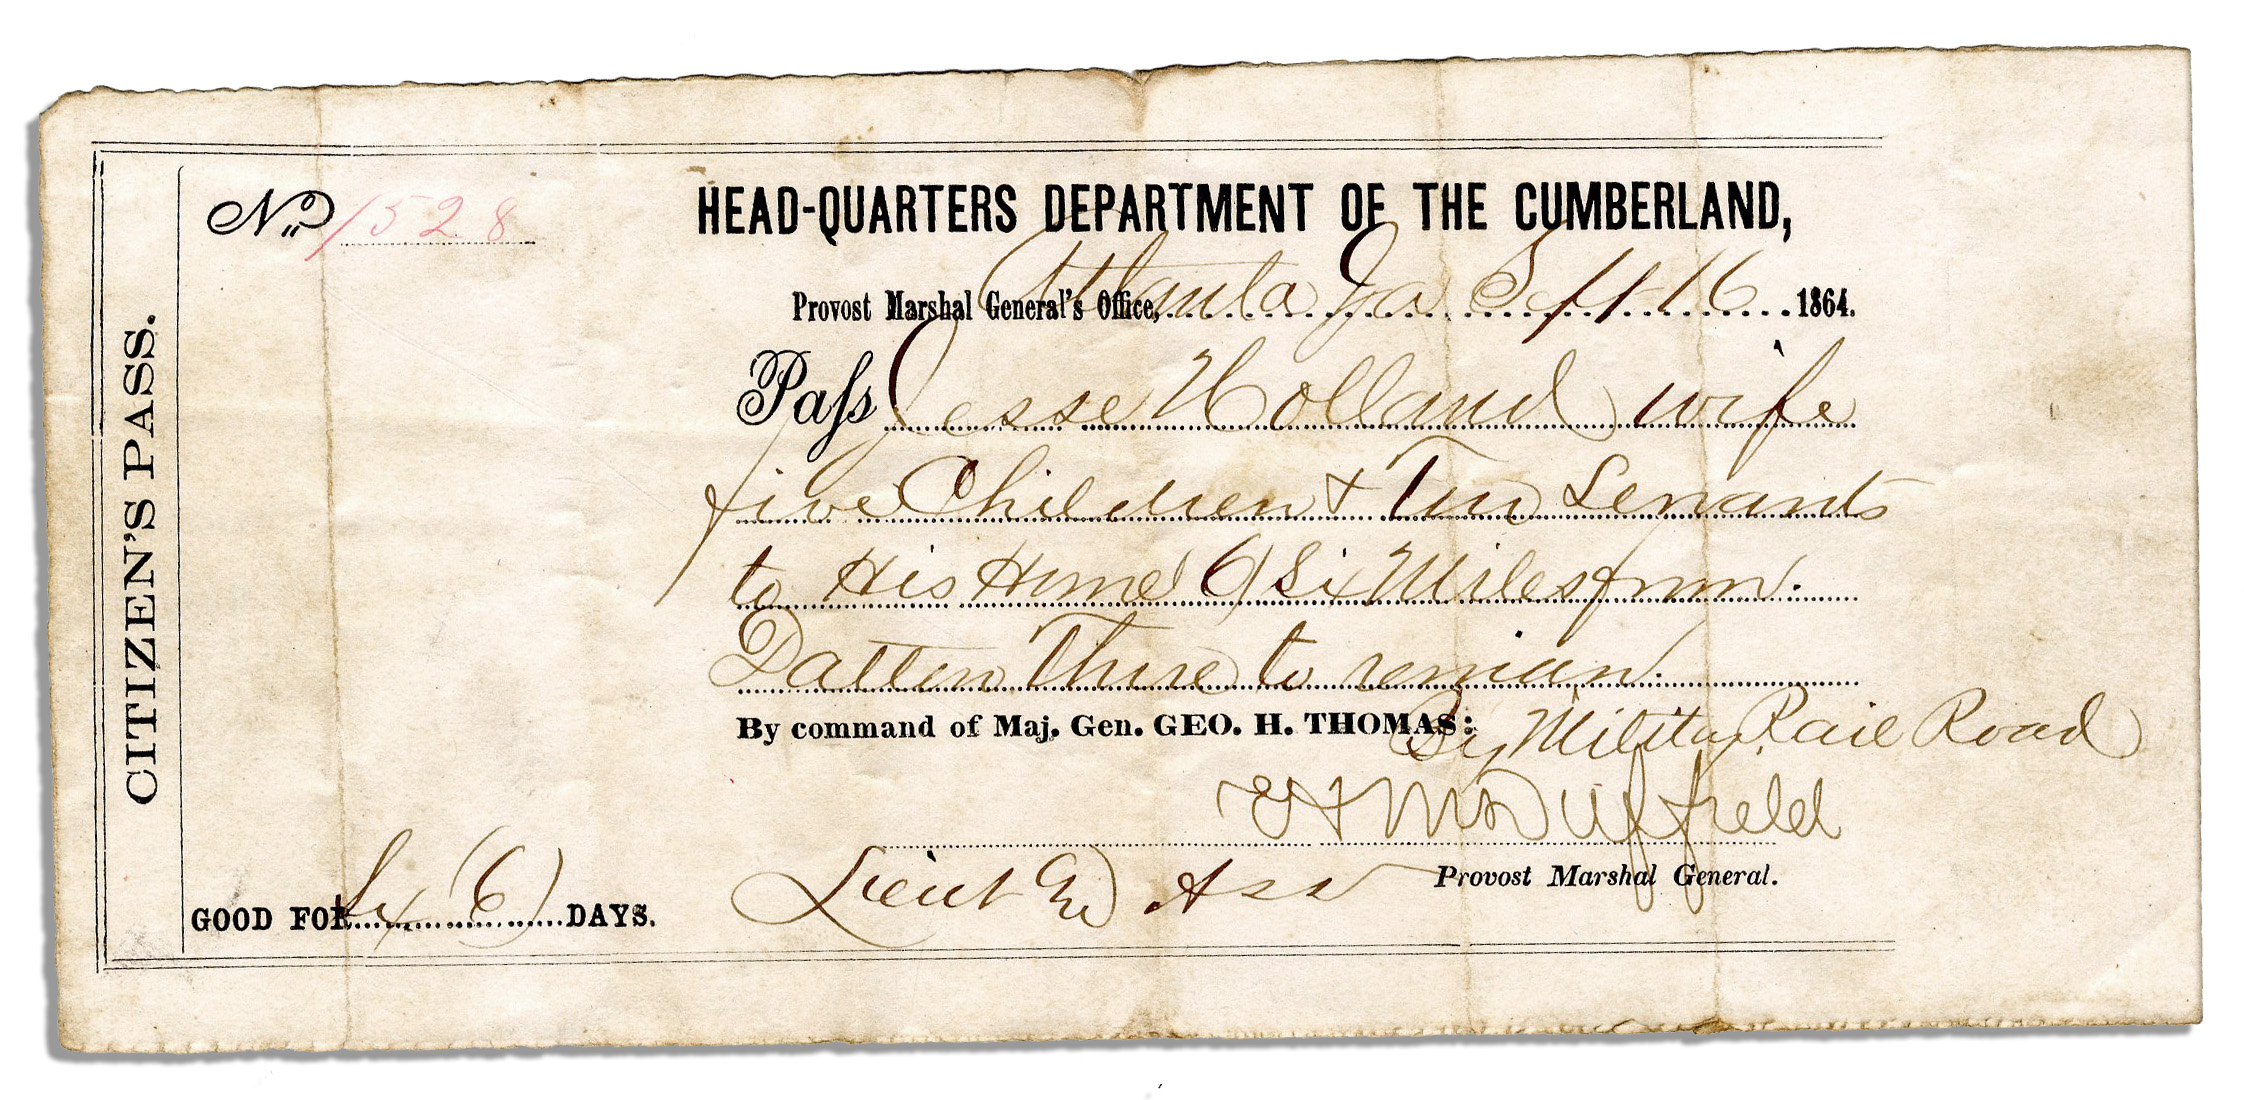 CITIZEN'S PASS.
No. 1528
HEAD-QUARTERS DEPARTMENT OF THE CUMBERLAND,
Provost Marshal General's Office, Atlanta Ga Sept 16 1864.
Pass Jesse Holland wife
five Children & Two Servants
to His Home (6) Six Miles from
Dalton There to remain.
By command of Maj. Gen. GEO. H. THOMAS:
By Military Rail Road
Duffield
Provost Marshal General.
Lieut &
GOOD FOR Six (6) DAYS.